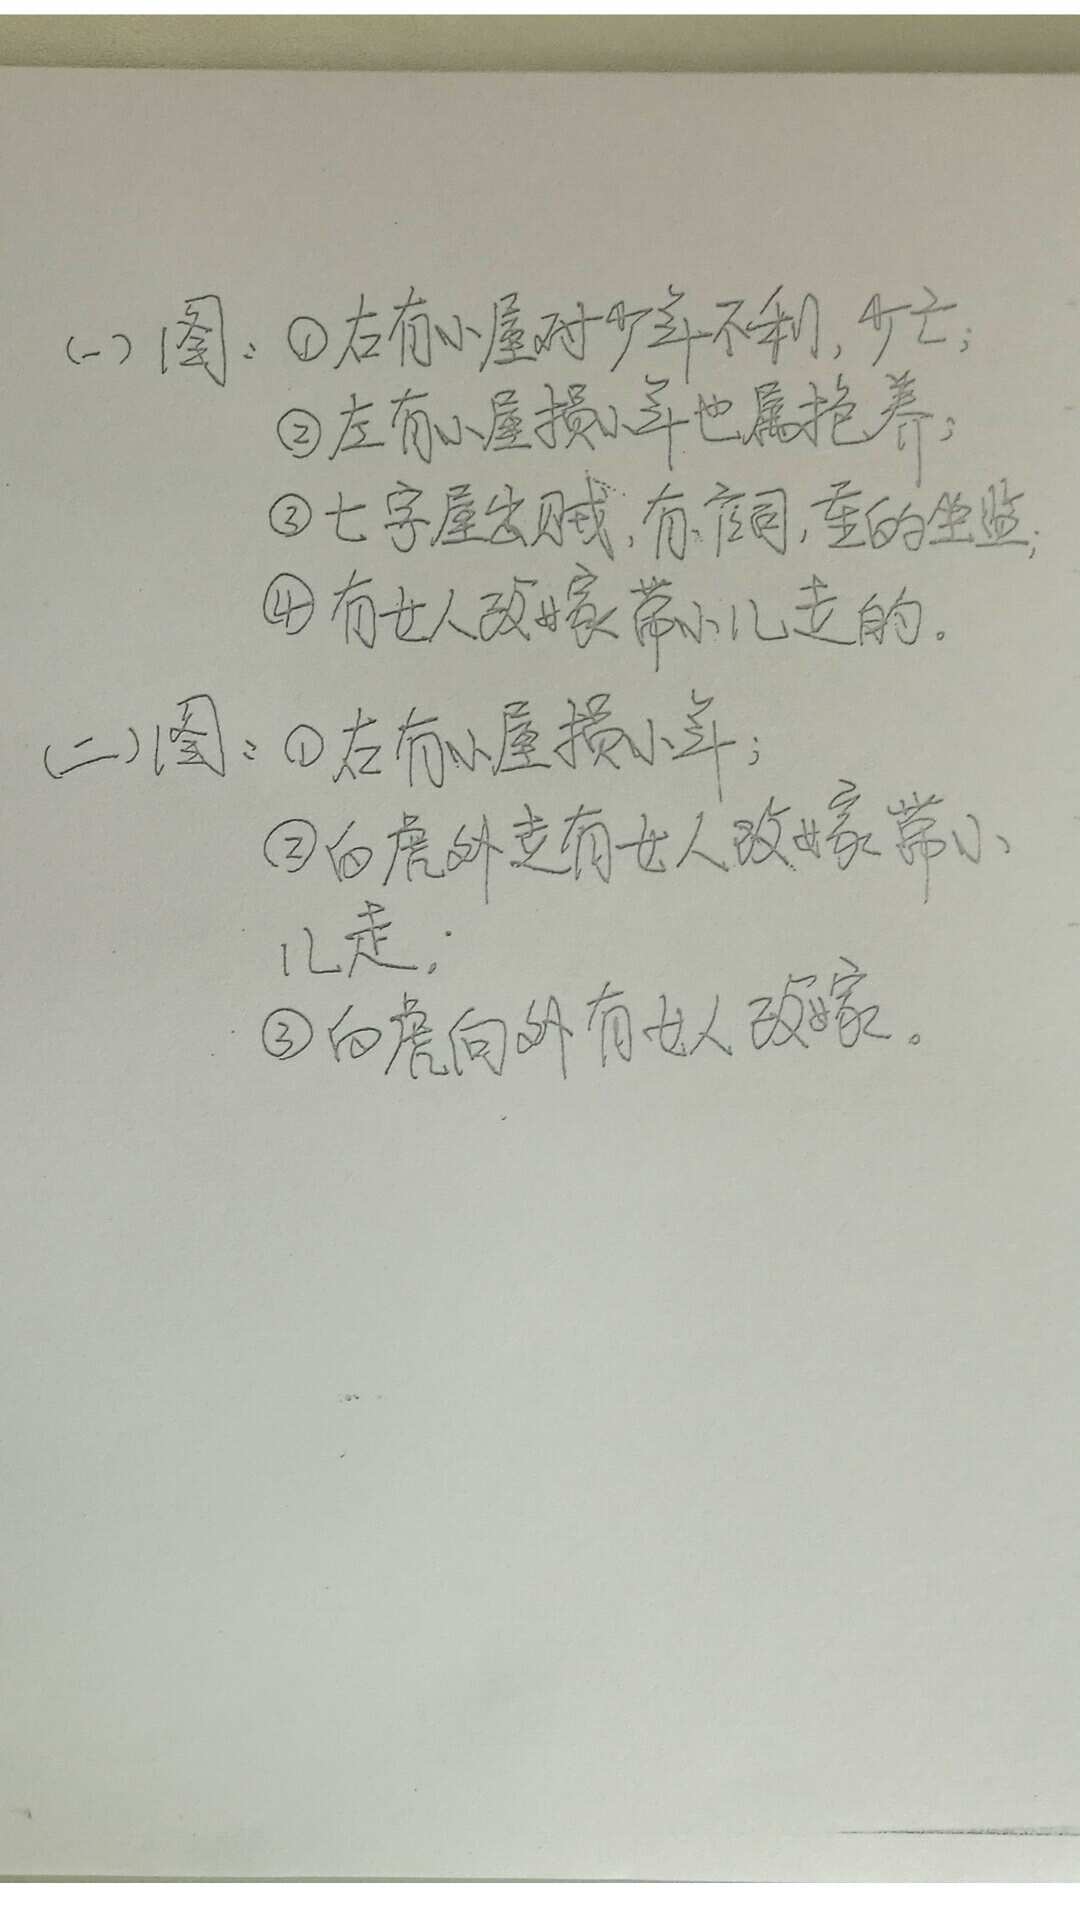 (一)图：①右有小屋对少年不利，少亡；
②左有小屋损小年也属抱养；
③七字屋出贼，有官司，重的坐监；
④有女人改嫁带小儿走的。
(二)图：①左有小屋损小年；
②白虎外走有女人改嫁带小
儿走；
③白虎向外有女人改嫁。